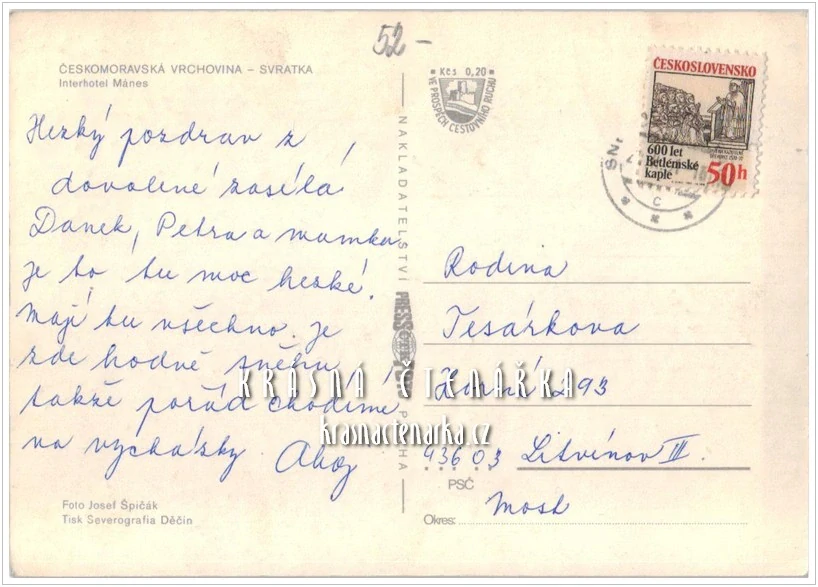 52-
ČESKOMORAVSKÁ VRCHOVINA – SVRATKA
Interhotel Mánes
Hezký pozdrav z
dovolené zasílá
Danek, Petra a mamka
je to tu moc hezké.
Mají tu všechno. je
zde hodně sněhu
takže pořád chodíme
na vycházky. Ahoj
Foto Josef Špičák
Tisk Severografia Děčín
NAKLADATELSTVÍ PRESSFOTO PRAHA
Kčs 0,20
VE PROSPĚCH CESTOVNÍHO RUCHU
ČESKOSLOVENSKO
600 let
Betlémské
kaple
50h
SN
C
Rodina
Tesárkova
Horní 293
43603 Litvínov III.
PSČ
Most
Okres:
KRÁSNÁ ČTENÁŘKA
krasnactenarka.cz